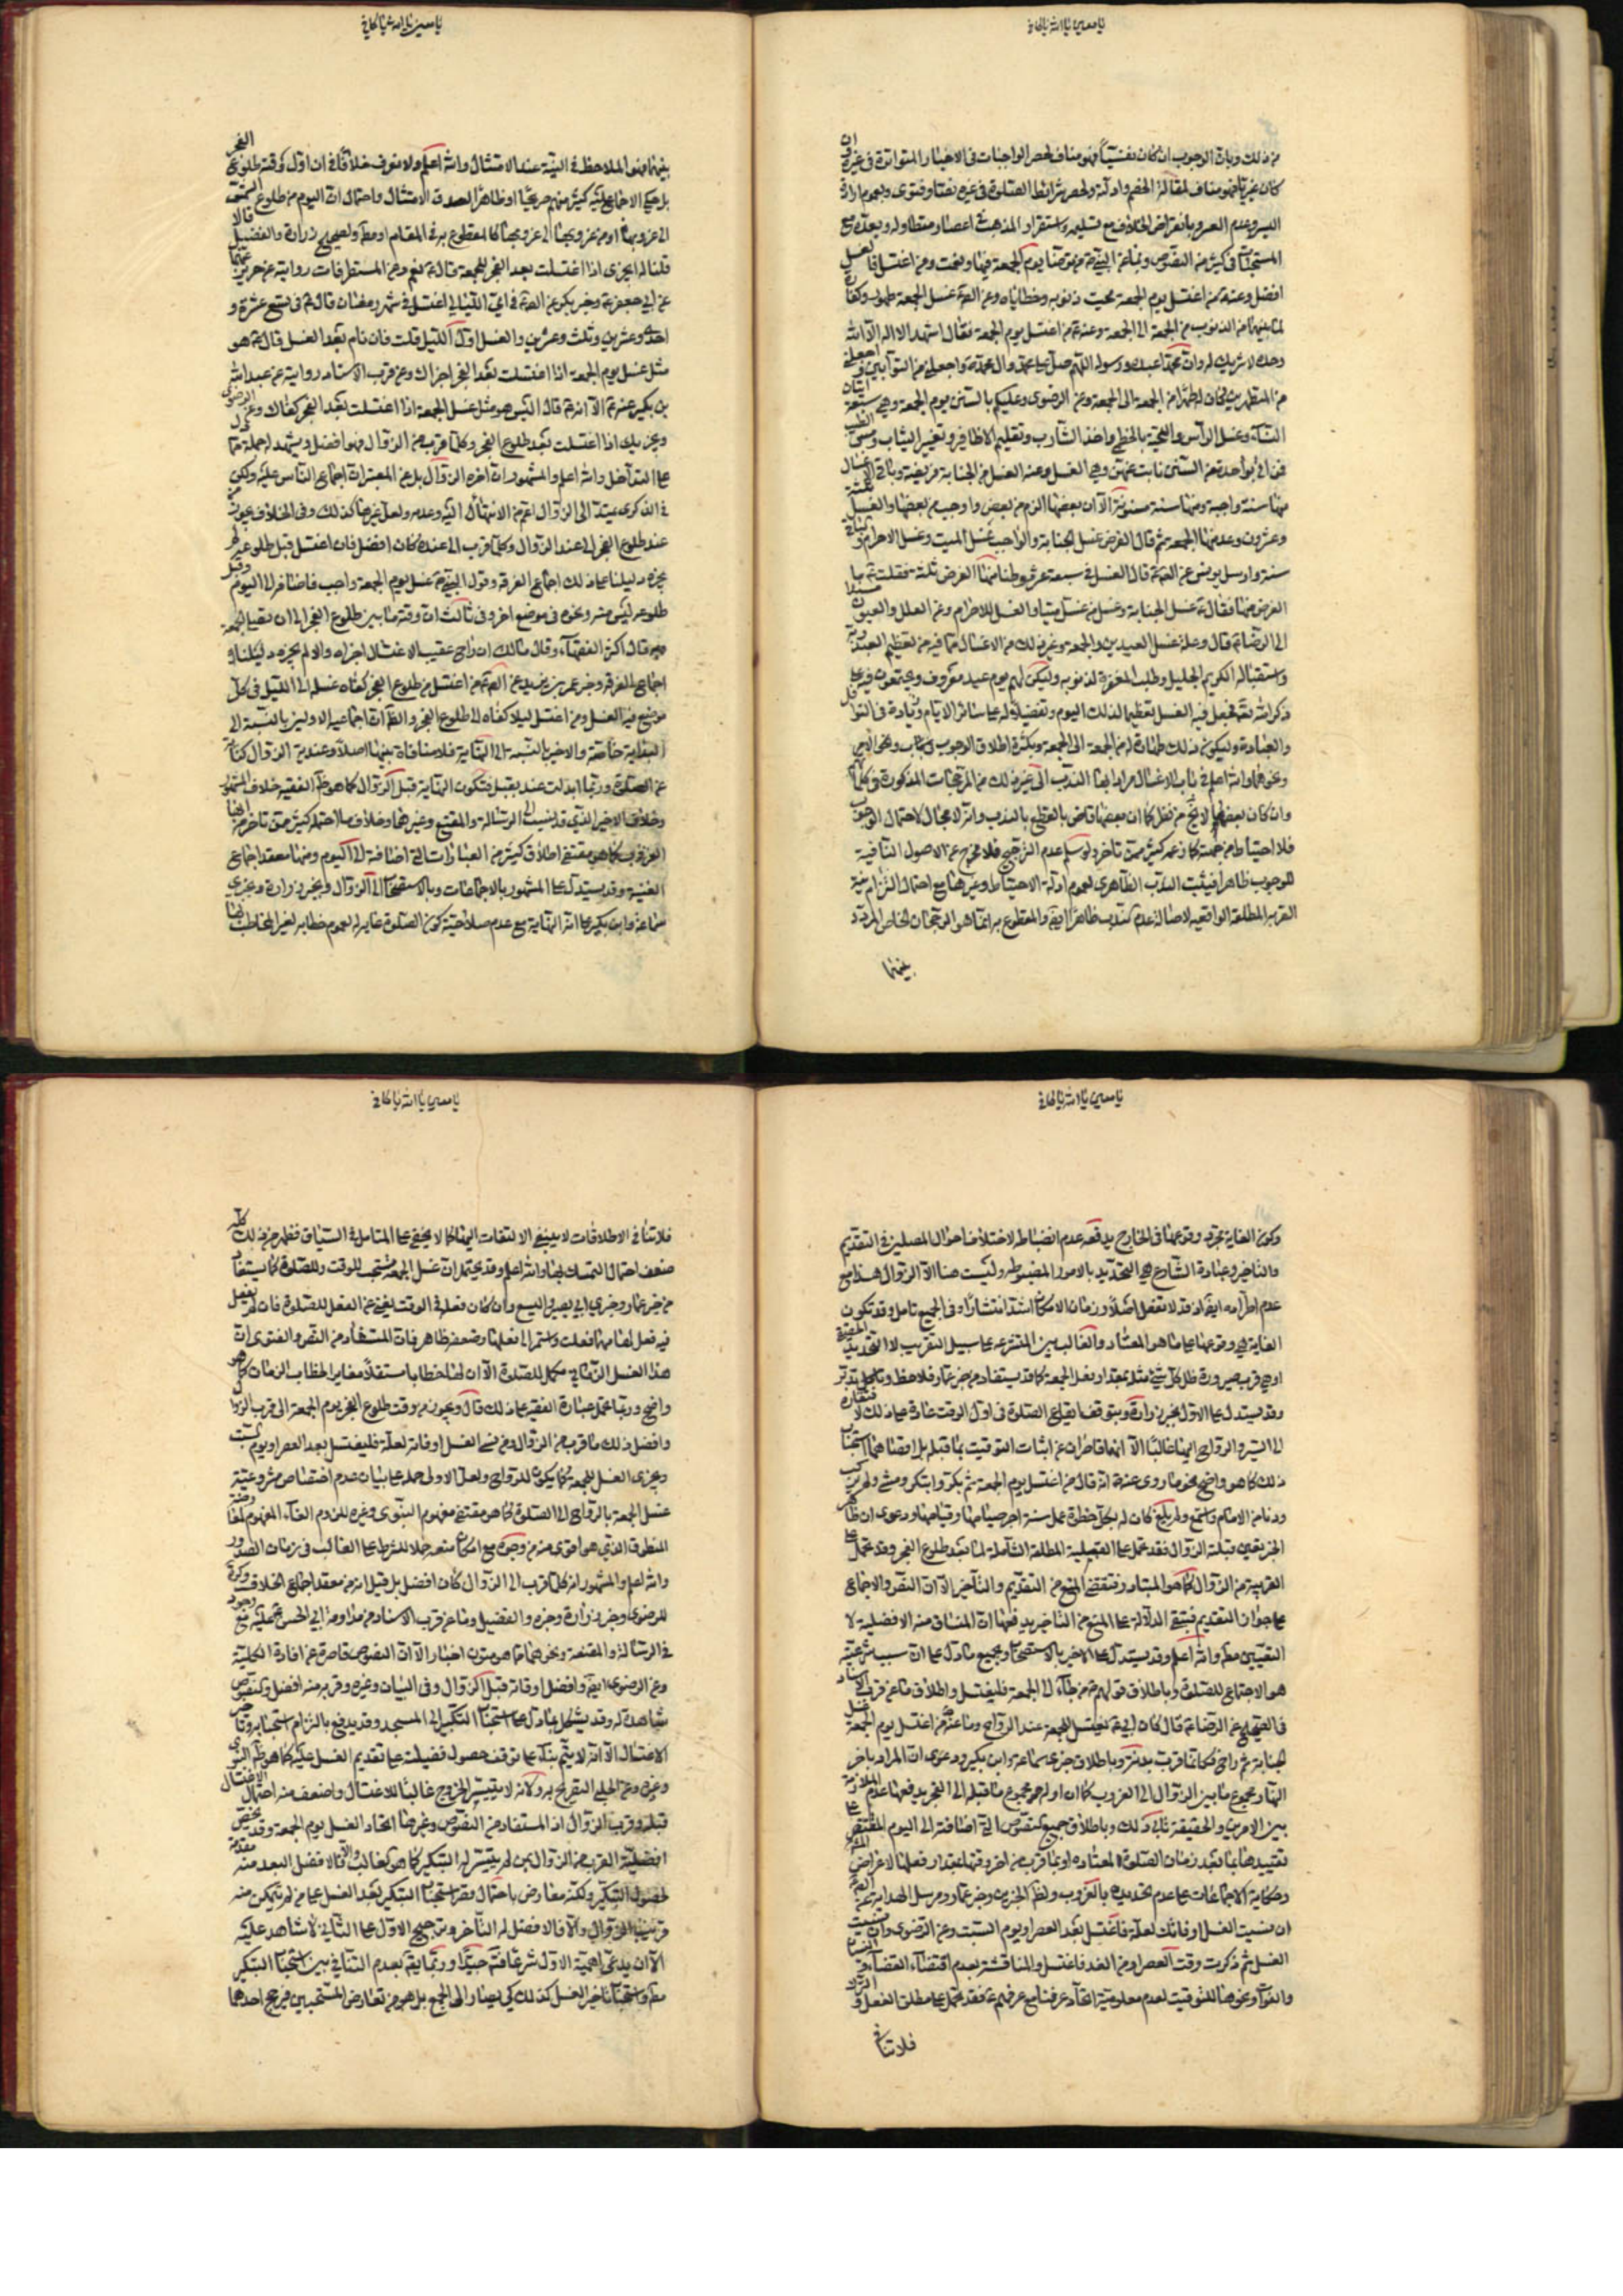 يا معين يا الله يا كافي
من ذلك وبان الوجوب ان كان نفسيا فهو مناف لحصر الواجبات في الاخبار المتواترة في غيره وان
كان غيريا فهو مناف لمقالة الخصم وادلة ولحصر شرائط الصلوة في غيره نصا وفتوى وبعموم ارادة
اليسر وعدم العسر وبانقراض الخلاف مع تسليمه واستقرار المذهب في اعصار متطاولة وبعده مع
المستحبات في كثير من النصوص وبما عن النبي من توضأ يوم الجمعة فبها ونعمت ومن اغتسل فالغسل
افضل وعنه من اغتسل يوم الجمعة محيت ذنوبه وخطاياه وعن الصم غسل الجمعة طهور وكفارة
لما بينهما من الذنوب من الجمعة الى الجمعة وعنه من اغتسل يوم الجمعة فقال اشهد ان لا اله الا الله
وحده لا شريك له وان محمدا عبده ورسوله اللهم صل على محمد وال محمد واجعلني من التوابين واجعلني
من المتطهرين كان له طهرا من الجمعة الى الجمعة وعن الرضوي وعليكم بالسنن يوم الجمعة وهي سبعة اتيان
النساء وغسل الراس واللحية بالخطمي واخذ الشارب وتقليم الاظافير وتغيير الثياب ومس الطيب
فمن اتى بواحدة من السنن نابت عنهن وهي الغسل وعنه الغسل من الجنابة فريضة وباقي الاغسال
منها سنة واجبة ومنها سنة مسنونة الا ان بعضها الزم من بعض واوجب من بعضها والغسل ثلثة
وعشرون وعد منها الجمعة ثم قال الفرض غسل الجنابة والواجب غسل الميت وغسل الاحرام
سنة وارسل يونس عن الصم قال الغسل في سبعة عشر موطنا منها الفرض ثلثة فقلت ما
الفرض منها فقال غسل الجنابة وغسل من غسل ميتا والغسل للاحرام وعن العلل والعيون مسندا
الى الرضا قال وعلة غسل العيدين والجمعة وغير ذلك من الاغسال لما فيه من تعظيم العبد ربه
واستقباله الكريم الجليل وطلب المغفرة لذنوبه وليكون لهم يوم عيد معروف يجتمعون فيه على
ذكر الله فجعل فيه الغسل تعظيما لذلك اليوم وتفضيلا له على سائر الايام وزيادة في النوافل
والعبادة وليكون ذلك طهارة له من الجمعة الى الجمعة وبكثرة اطلاق الوجوب
ونحوهما والله اعلم في باب الاغسال مرادا بها الندب الى غير ذلك من المرجحات المذكورة في كلها
وان كان بعضها لا يخ من نظر كما ان بعضها قاض بالقطع بالندب وانه لا مجال لاحتمال الوجوب
فلا احتياط من جهته كما زعمه كثير ممن تاخر ولو سلم عدم الترجيح فلا مخرج عن الاصول النافية
للوجوب ظاهرا فيثبت الندب الظاهري لعموم ادلة الاحتياط وغيرها مع احتمال التزام نية
القربة المطلقة الواقعية لاصالة عدم ظاهرا ايض والمقطوع به انما هو الرجحان الخاص المردد
بينهما
يا معين يا الله يا كافي
بينهما فهو الملاحظ في النية عند الامتثال والله اعلم ولا نعرف خلافا في ان اول وقته طلوع الفجر
بل حكي الاجماع عليه كثير منهم صريحا او ظاهرا لصدق الامتثال واحتمال ان اليوم من طلوع الشمس
الى غروبها او من غروبها الى غروبها كالمقطوع به في المقام او مط ولصحيح زرارة والفضيل قالا
قلنا له ايجزي اذا اغتسلت بعد الفجر للجمعة قال نعم وعن المستطرفات روايته عن حريز عنهما
عن ابي جعفر وخبر بكير عن الصم في اي الليالي اغتسل في شهر رمضان قال في تسع عشرة و
احدى وعشرين وثلث وعشرين والغسل اول الليل قلت فان نام بعد الغسل قال هو
مثل غسل يوم الجمعة اذا اغتسلت بعد الفجر اجزاك وعن قرب الاسناد روايته عن عبد الله
بن بكير عنه الا انه قال اليس هو مثل غسل الجمعة اذا اغتسلت بعد الفجر كفاك وعن الرضوي
ويجزيك اذا اغتسلت بعد طلوع الفجر وكلما قرب من الزوال فهو افضل ويشهد له جملة مما
على التداخل والله اعلم والمشهور ان اخره الزوال بل عن المعتبر ان اجماع الناس عليه ولكن
في الذكرى يمتد الى الزوال اعم من الانتهاء اليه وعدمه ولعل غيرها كذلك وفي الخلاف يجوز من
عند طلوع الفجر الى عند الزوال وكلما قرب الى عنده كان افضل فان اغتسل قبل طلوعه لم
يجزه دليلنا على ذلك اجماع الفرقة وقول النبي غسل يوم الجمعة واجب فاضافه الى اليوم وقبل
طلوعه ليس منه ونحوه في موضع اخر وفي ثالث ان وقته ما بين طلوع الفجر الى ان يصلي الجمعة
وبه قال اكثر الفقهاء وقال مالك ان راح عقيب الاغتسال اجزاه والا لم يجزه دليلنا
اجماع الفرقة وخبر عمر بن يزيد عن الصم من اغتسل من طلوع الفجر كفاه غسله الى الليل في كل
موضع فيه الغسل ومن اغتسل ليلا كفاه الى طلوع الفجر والظ ان اجماعيه الاولين بالنسبة الى
البداية خاصة والاخير بالنسبة الى النهاية فلا منافاة بينهما اصلا وعنده الزوال كناية
عن الصلوة وربما ابدلت عند بقبل فتكون النهاية قبل الزوال كما هو ظ الفقيه خلاف المشهور
وخلاف الاخير الذي قد ينسب الى الرسالة والمقنع وغيرهما وخلاف ما احتمله كثير ممن تاخر من بقائه
الغروب كما هو مقتضى اطلاق كثير من العبارات التي اضافته الى اليوم ومنها معقد اجماع
الغنية وقد يستدل على المشهور بالاجماعات وبالاستصحاب الى الزوال وبخبر زرارة وخبري
سماعة وابن بكير على انه النهاية مع عدم صلاحية كون الصلوة غاية له لعموم خطابه لغير المخاطب بها
يا معين يا الله يا كافي
وكون الغاية مجرد وقوعها في الخارج يدفعه عدم انضباطه لاختلاف احوال المصلين في التقديم
والتاخير وعادة الشارع هي التحديد بالامور المضبوطة وليست هنا الا الزوال هذا مع
عدم اطراده ايض اذ قد لا تفعل اصلا وزمان الامكان اشد انتشارا وفي الجميع تامل وقد تكون
الغاية هي وقوعها على ما هو المعتاد والغالب بين المتشرعة على سبيل التقريب لا التحديد الحقيقة
او هي قرب صيرورة ظل كل شيء مثله بمقدار فعل الجمعة كما قد يستفاد من خبر عمار فلاحظ وتامل وتدبر
وقد يستدل على الاول بخبر زرارة وبتوقف ايقاع الصلوة في اول الوقت عادة على ذلك لافتقاره
الى السير والرواح اليها غالبا الا انهما قاصران عن اثبات التوقيت بما قبله بل اقصاهما استحباب
ذلك كما هو واضح نحو ما روي عنه انه قال من اغتسل يوم الجمعة ثم بكر وابتكر ومشى ولم يركب
ودنا من الامام واستمع ولم يلغ كان له بكل خطوة عمل سنة اجر صيامها وقيامها ودعوى ان ظاهر
الخبرين قبلية الزوال فقد تحمل على القبلية المطلقة الشاملة لما بعد طلوع الفجر وقد تحمل على
القريبة من الزوال كما هو المتبادر فتقتضي المنع من التقديم والتاخير الا ان النص والاجماع
على جواز التقديم فتبقى الدلالة على المنع من التاخير يدفعها ان المنساق منه الافضلية لا
التعيين مط والله اعلم وقد يستدل على الاخير بالاستصحاب وبجميع ما دل على ان سبب شرعيته
هو الاجتماع للصلوة وباطلاق قولهم من جاء الى الجمعة فليغتسل واطلاق ما عن قرب الاسناد
في الصحيح عن الرضا قال كان ابي يغتسل للجمعة عند الرواح وما عنه من اغتسل يوم الجمعة غسل
الجنابة ثم راح فكانما قرب بدنة وباطلاق خبري سماعة وابن بكير ودعوى ان المراد باخر
النهار مجموع ما بين الزوال الى الغروب كما ان اوله هو مجموع ما قبله الى الفجر يدفعها عدم الملازمة
بين الامرين والحقيقة تنافي ذلك وباطلاق جميع النصوص التي اضافته الى اليوم المقتضي
تقييدها بما بعد زمان الصلوة المعتاد او بما قرب من اخر وقتها بمقدار فعلها لاعراض
وحكاية الاجماعات على عدم تحديده بالغروب ولظ الخبرين وخبر عمار ومرسل الهداية عن الصم
ان نسيت الغسل او فاتك لعلة فاغتسل بعد العصر او يوم السبت وعن الرضوي وان نسيت
الغسل ثم ذكرت وقت العصر او من الغد فاغتسل والمناقشة بعدم اقتضاء القضاء
والفوات ونحوهما للتوقيت لعدم معلومية اتحاد عرفنا مع عرفهم فقد تحمل على مطلق الفعل
فلا تنافي
يا معين يا الله يا كافي
فلا تنافي الاطلاقات لا ينبغي الالتفات اليها كما لا يخفى على المتامل في السياق فظهر من ذلك كله
ضعف احتمال التمسك بها والله اعلم وقد يحتمل ان غسل الجمعة مستحب للوقت وللصلوة كما يستفاد
من خبر عمار وخبري ابي بصير واليسع وان كان فعله في الوقت يغني عن الفعل للصلوة فان لم يفعل
فيه فعل لها مهما فعلت واستمر الى فعلها وضعفه ظاهر فان المستفاد من النص والفتوى ان
هذا الغسل الزماني مكمل للصلوة الا ان لها خطابا مستقلا مغايرا لخطاب الزمان كما هو
واضح وربما تحمل عبارة الفقيه على ذلك قال ويجوز من وقت طلوع الفجر يوم الجمعة الى قرب الزوال
وافضل ذلك ما قرب من الزوال ومن نسي الغسل او فاته لعلة فليغتسل بعد العصر او يوم السبت
ويجزي الغسل للجمعة كما يكون للرواح ولعل الاولى حمله على بيان عدم اختصاص مشروعية
غسل الجمعة بالرواح الى الصلوة كما هو مقتضى مفهوم النبوي وغيره للزوم الغاء المفهوم لمعارضة
المنطوق الذي هو اقوى منه من وجوه مع امكان منعه حملا للشرط على الغالب في زمان الصدور
والله اعلم والمشهور انه كلما قرب الى الزوال كان افضل بل قيل انه من معقد اجماع الخلاف وذكره
للرضوي وخبر زرارة وخبره والفضيل وما عن قرب الاسناد من مداومة ابي الحسن عليه مع وجوده
في الرسالة والمقنعة ونحوهما مما هو متون اخبار الا ان النصوص قاصرة عن افادة الكلية
وعن الرضوي ايض وافضل اوقاته قبل الزوال وفي البيان وغيره وقربه منه افضل
شاهدة له وقد يشكل بما دل على استحباب التبكير الى المسجد وقد يدفع بالتزام استحبابه وتاخر
الاغتسال الا انه لا يتم بناء على توقف حصول فضيلته على تقديم الغسل عليه كما هو ظ النبوي
وغيره وعن الحلبي التصريح به وكانه لا يتيسر الخروج غالبا للاغتسال واضعف منه احتمال الاغتسال
قبله وقرب الزوال اذ المستفاد من النصوص وغيرها اتحاد الغسل يوم الجمعة وقد يخص
افضلية القرب من الزوال بمن لم يتيسر له التبكير كما هو الغالب والا فالافضل البعد منه مقدمة
لحصول التبكير ولكنه معارض باحتمال قصر استحباب التبكير بعد الغسل على من لم يتمكن منه
قريب الزوال والا فالافضل له التاخر وترجيح الاول على الثاني لا شاهد عليه
الا ان يدعى اهمية الاول شرعا فتم جيدا وربما يقع بعدم التنافي بين استحباب التبكير
مط واستحباب تاخير الغسل كذلك كي يصار الى الجمع بل هو من تعارض المستحبين فيرجح احدهما